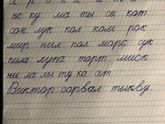 но ку ма ты си кат
сон лук кол ком рок
мир нил пол морс сук
пила лука торт миск
ни ла лы ту ка от
Виктор сорвал тыкву.